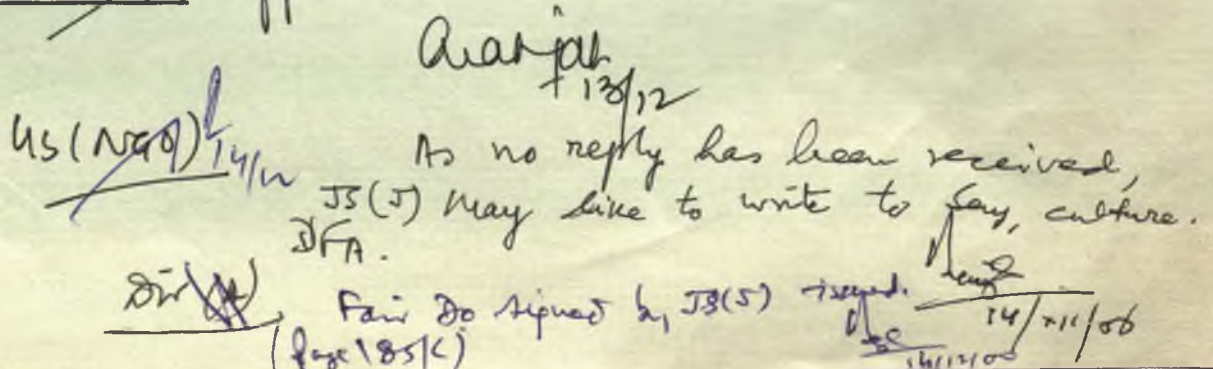 13/12
US(NGO) 14/12
As no reply has been received,
JS(J) may like to write to Secy, culture.
DFA.
14/XII/06
Dir(A) Fair DO signed by JS(J) issued.
(Page 185/C)